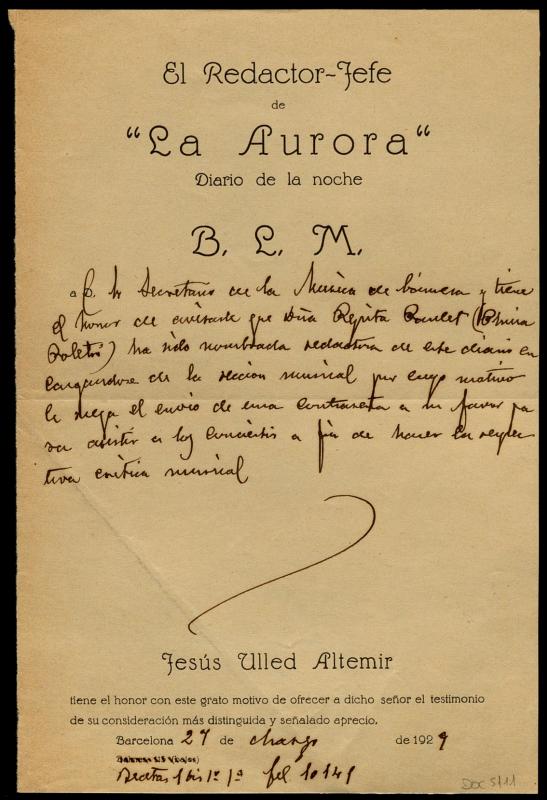 El Redactor-Jefe
de
"La Aurora"
Diario de la noche
B. L. M.
a D. Secretario de la Música de Cámera y tiene
el honor de avisarle que Dña Pepita Paulet
ha sido nombrada redactora de este diario en
cargandose de la sección musical por cuyo motivo
le ruega el envio de una contraseña a su favor pa
ra asistir a los conciertos a fin de hacer la respec
tiva crítica musical
Jesús Ulled Altemir
tiene el honor con este grato motivo de ofrecer a dicho señor el testimonio
de su consideración más distinguida y señalado aprecio.
Barcelona 27 de de 1929
Beatas 1 bis 1º 1ª 10141
DOC 5111